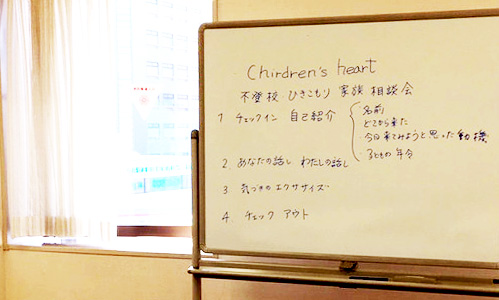 Chirdren's heart
不登校・ひきこもり 家族 相談会
1 チェックイン 自己紹介
・名前
どこから来た
・今日来てみようと思った動機
・子どもの年令
2. あなたの話し わたしの話し
3 気づきのエクササイズ
4. チェック アウト